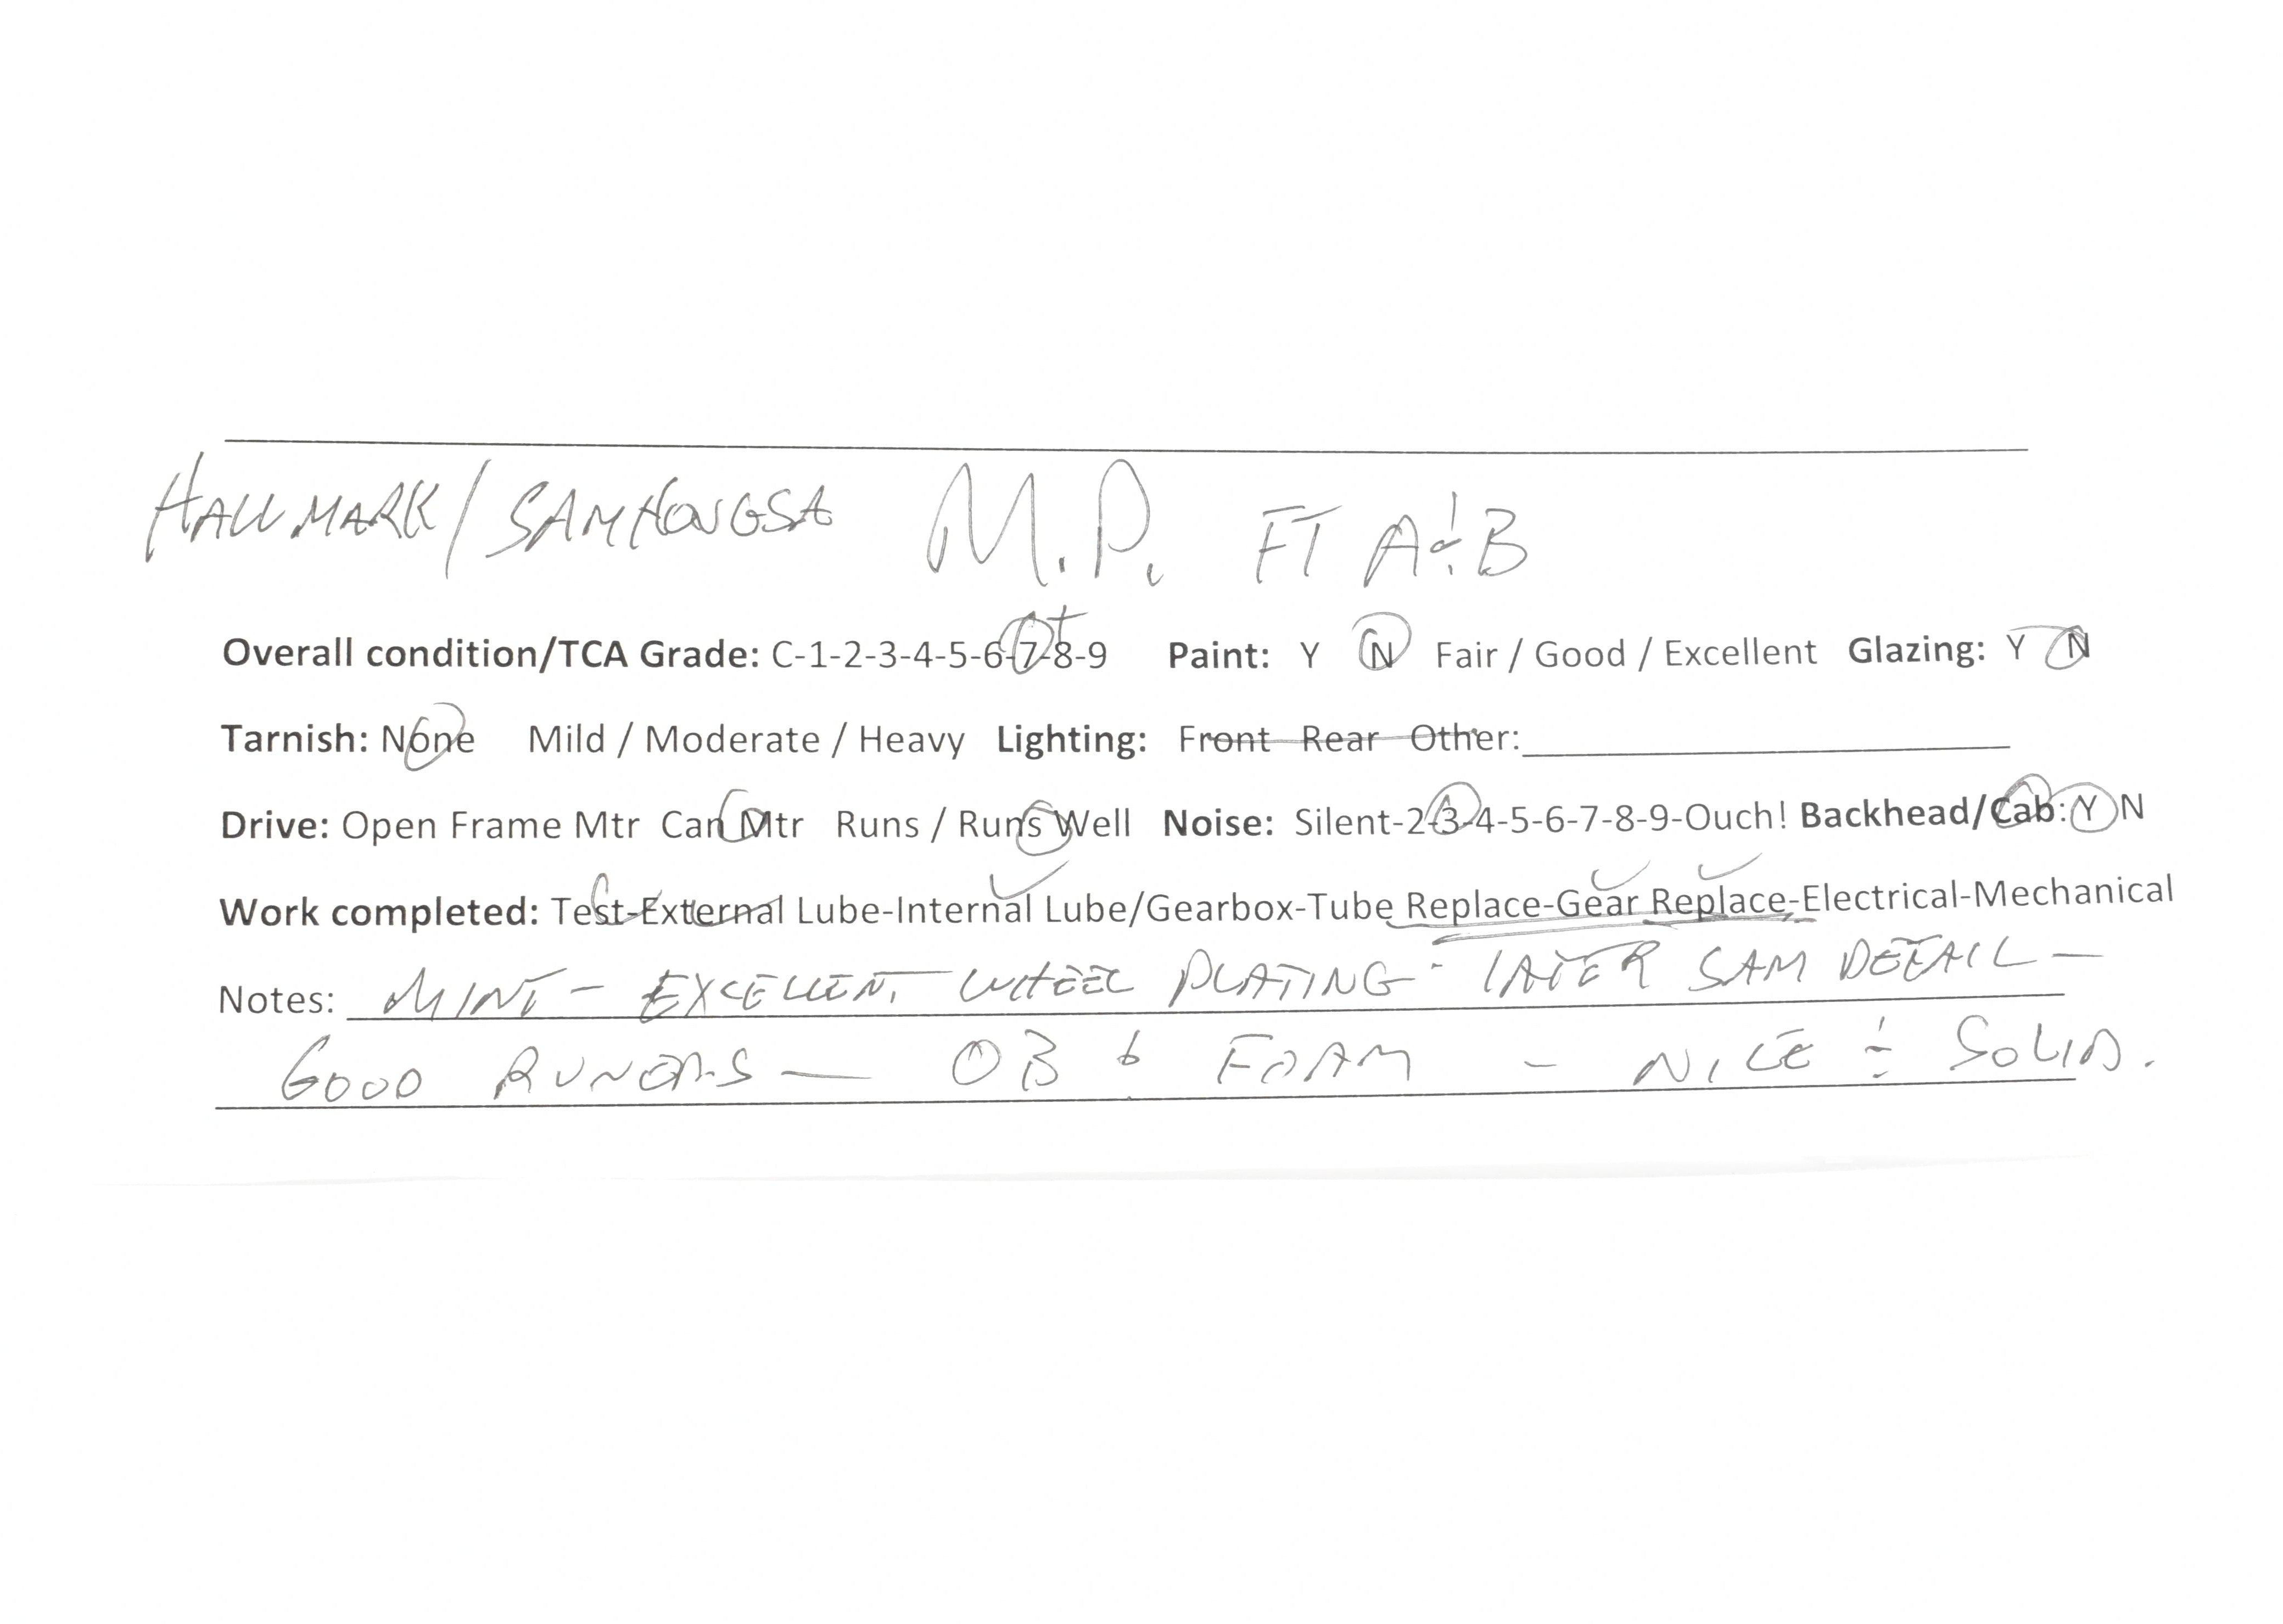 HALLMARK / SAMHONGSA M.P. FT A & B
Overall condition/TCA Grade: C-1-2-3-4-5-6-7-8-9 + Paint: Y N Fair / Good / Excellent Glazing: Y N
Tarnish: None Mild / Moderate / Heavy Lighting: Front Rear Other:
Drive: Open Frame Mtr Can Mtr Runs / Runs Well Noise: Silent-2-3-4-5-6-7-8-9-Ouch! Backhead/Cab: Y N
Work completed: Test-External Lube-Internal Lube/Gearbox-Tube Replace-Gear Replace-Electrical-Mechanical
Notes: MINT - EXCELLENT WHEEL PLATING - LATER SAM DETAIL -
GOOD RUNERS - OB & FOAM - NICE & SOLID.